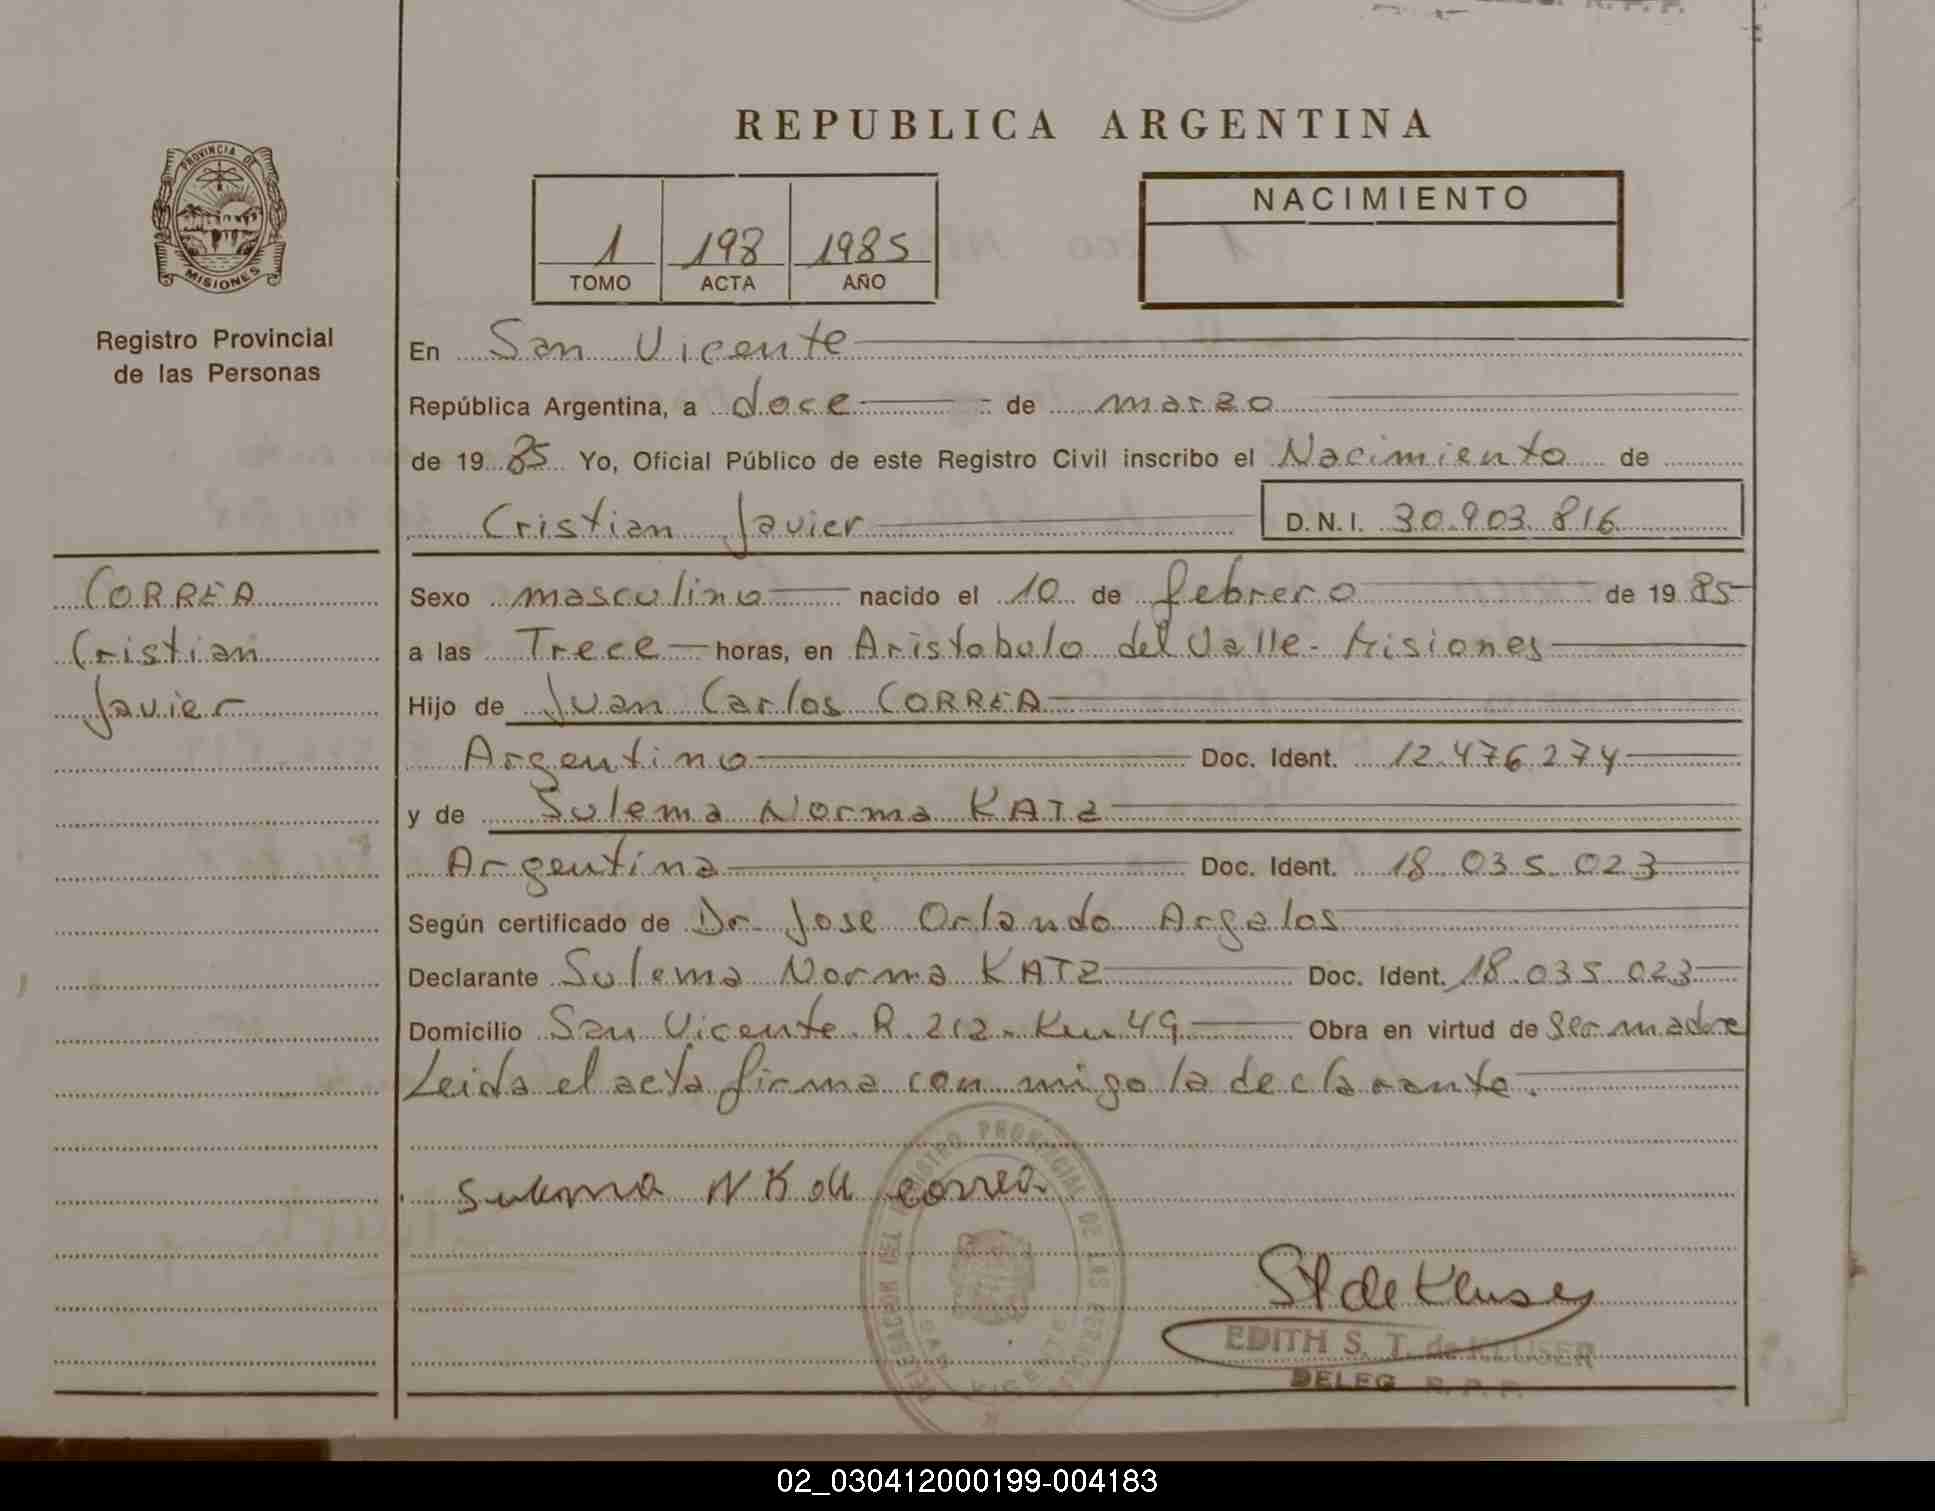 REPUBLICA ARGENTINA
PROVINCIA DE
MISIONES
Registro Provincial
de las Personas
1 198 1985
TOMO ACTA AÑO
NACIMIENTO
En San Vicente
República Argentina, a doce de marzo
de 19 85 Yo, Oficial Público de este Registro Civil inscribo el Nacimiento de
Cristian Javier D.N.I. 30.903.816
CORREA
Cristian
Javier
Sexo masculino nacido el 10 de febrero de 19 85
a las Trece horas, en Aristobulo del Valle - Misiones
Hijo de Juan Carlos CORREA
Argentino Doc. Ident. 12.476.274
y de Sulema Norma KATZ
Argentina Doc. Ident. 18.035.023
Según certificado de Dr. Jose Orlando Argalos
Declarante Sulema Norma KATZ Doc. Ident. 18.035.023
Domicilio San Vicente R. 212. Km 49 Obra en virtud de Ser madre
Leida el acta firma con migo la declarante.
Sulema N K de Correa
DELEGACION DEL REGISTRO PROVINCIAL DE LAS PERSONAS
SAN VICENTE
St de Kluser
EDITH S. T. de KLUSER
DELEG R. P. P.
02_030412000199-004183